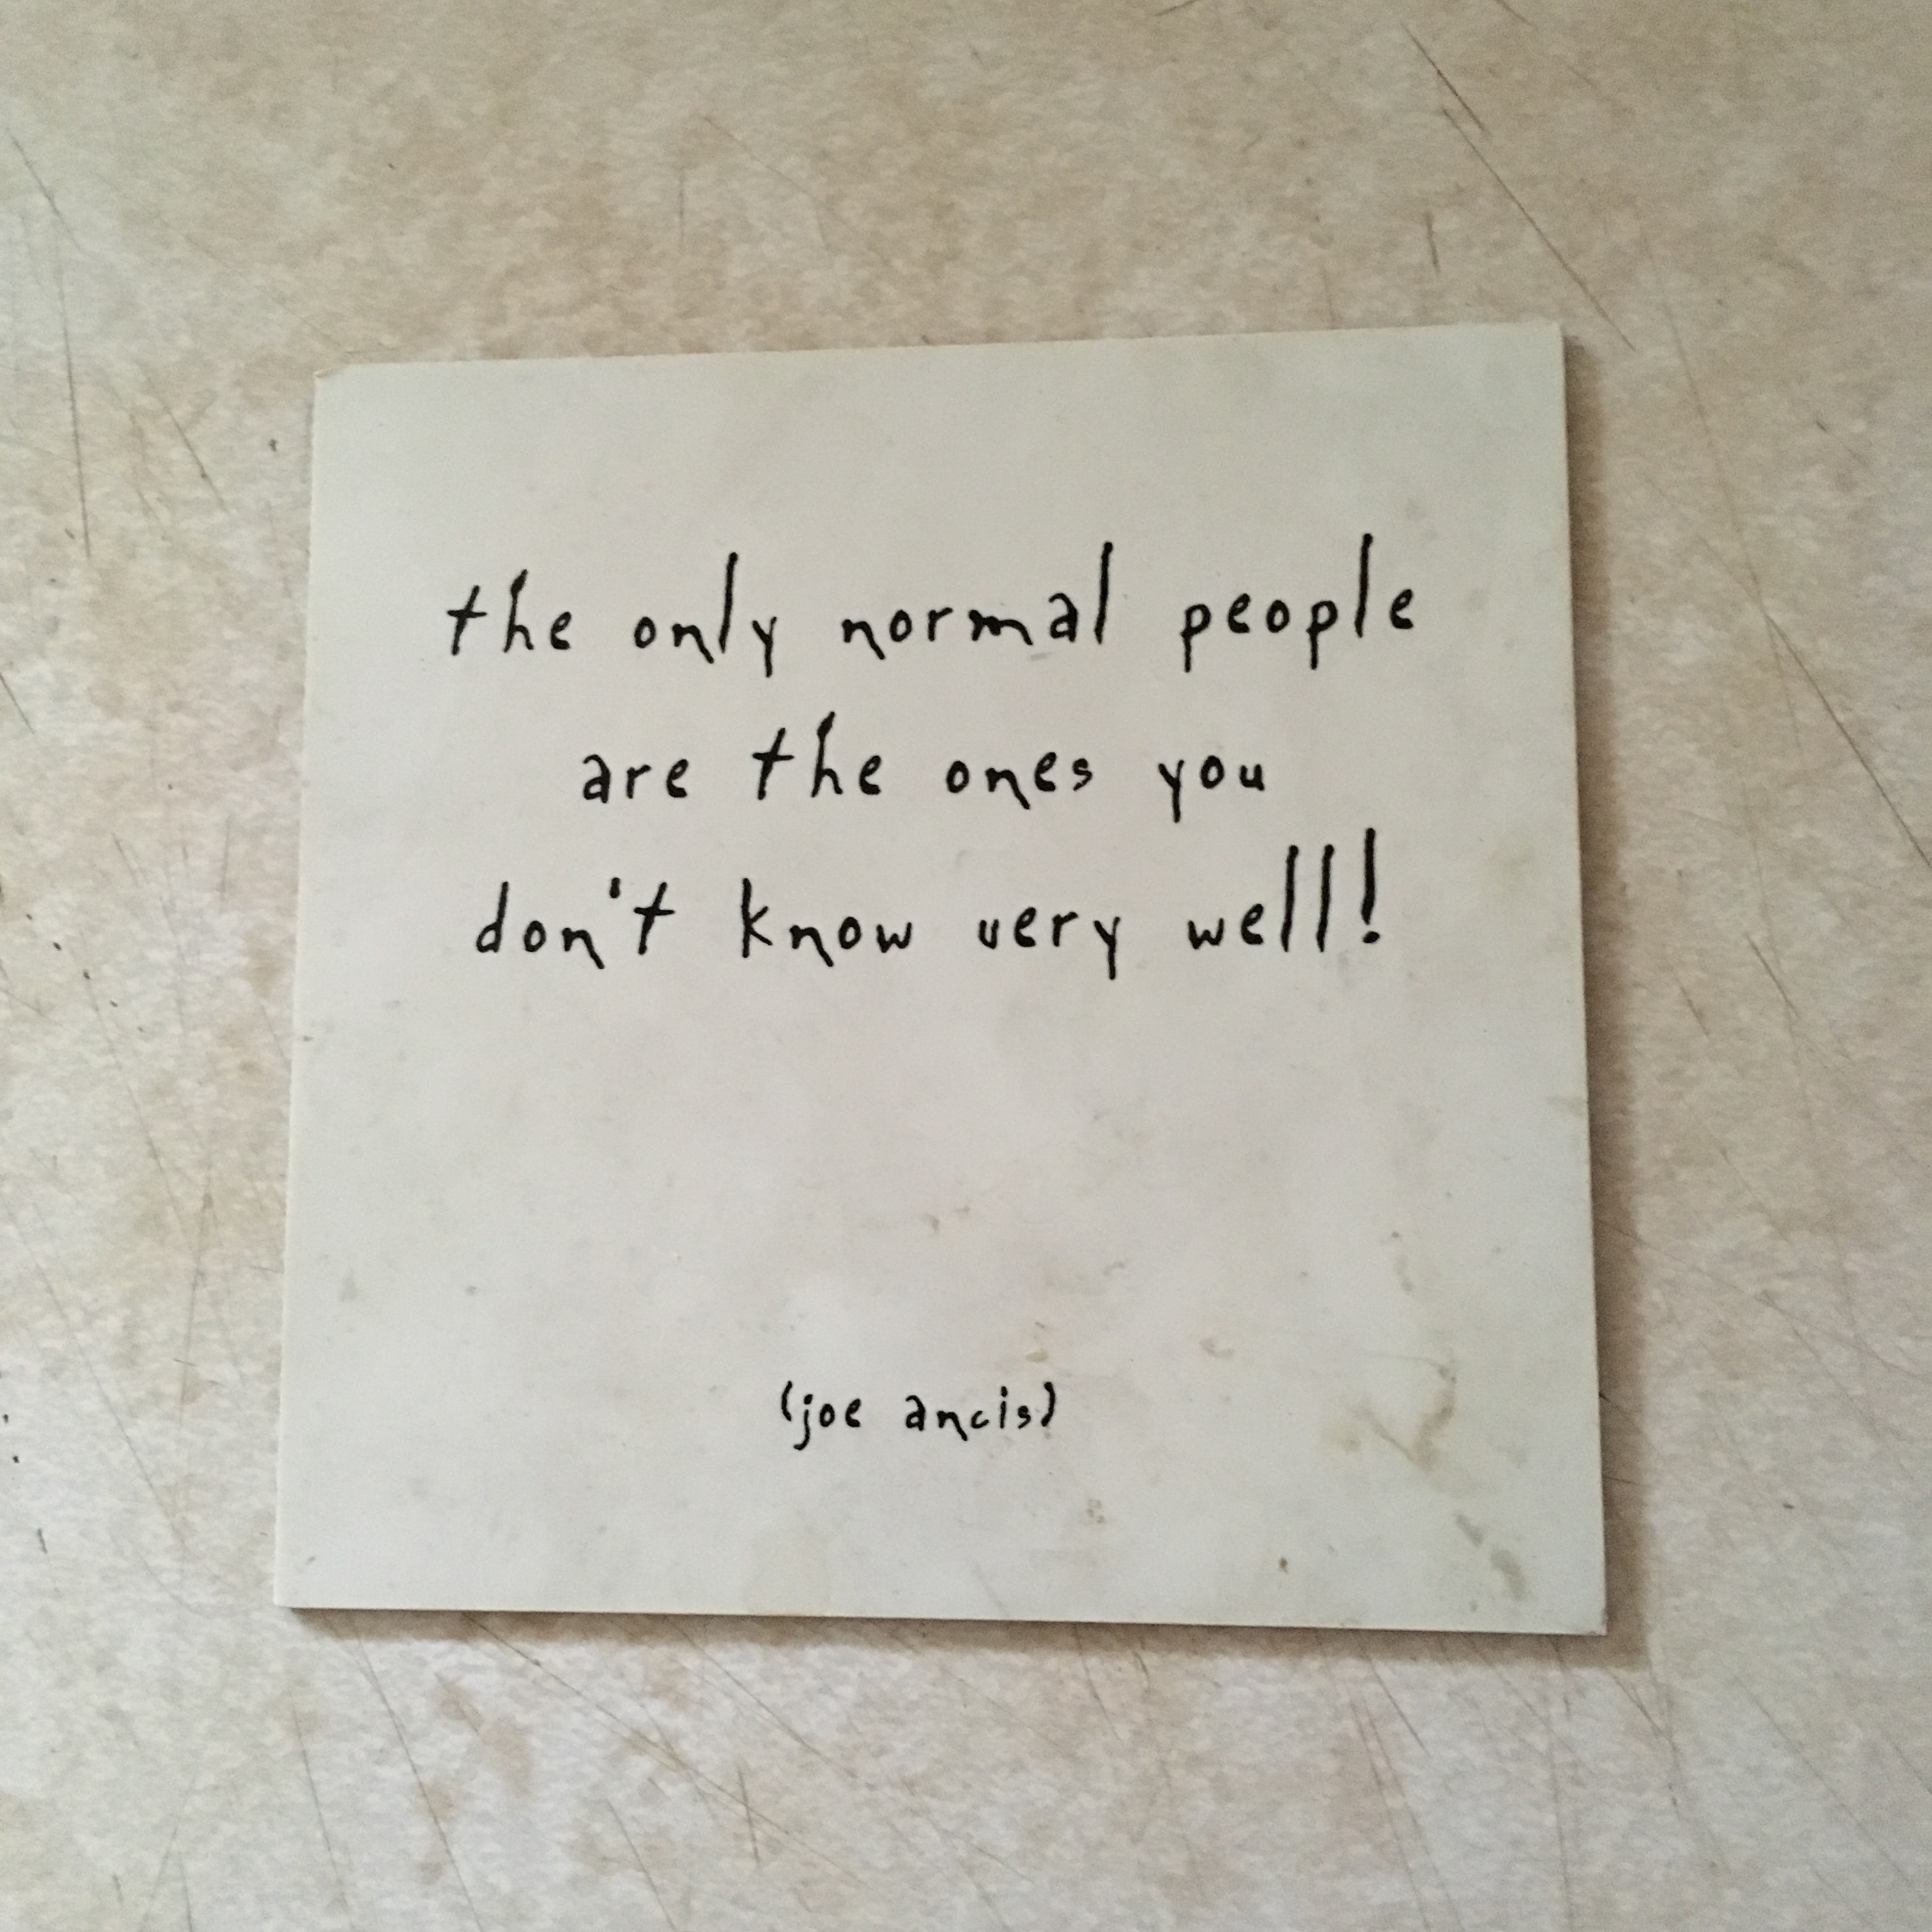 the only normal people
are the ones you
don't know very well!
(joe ancis)